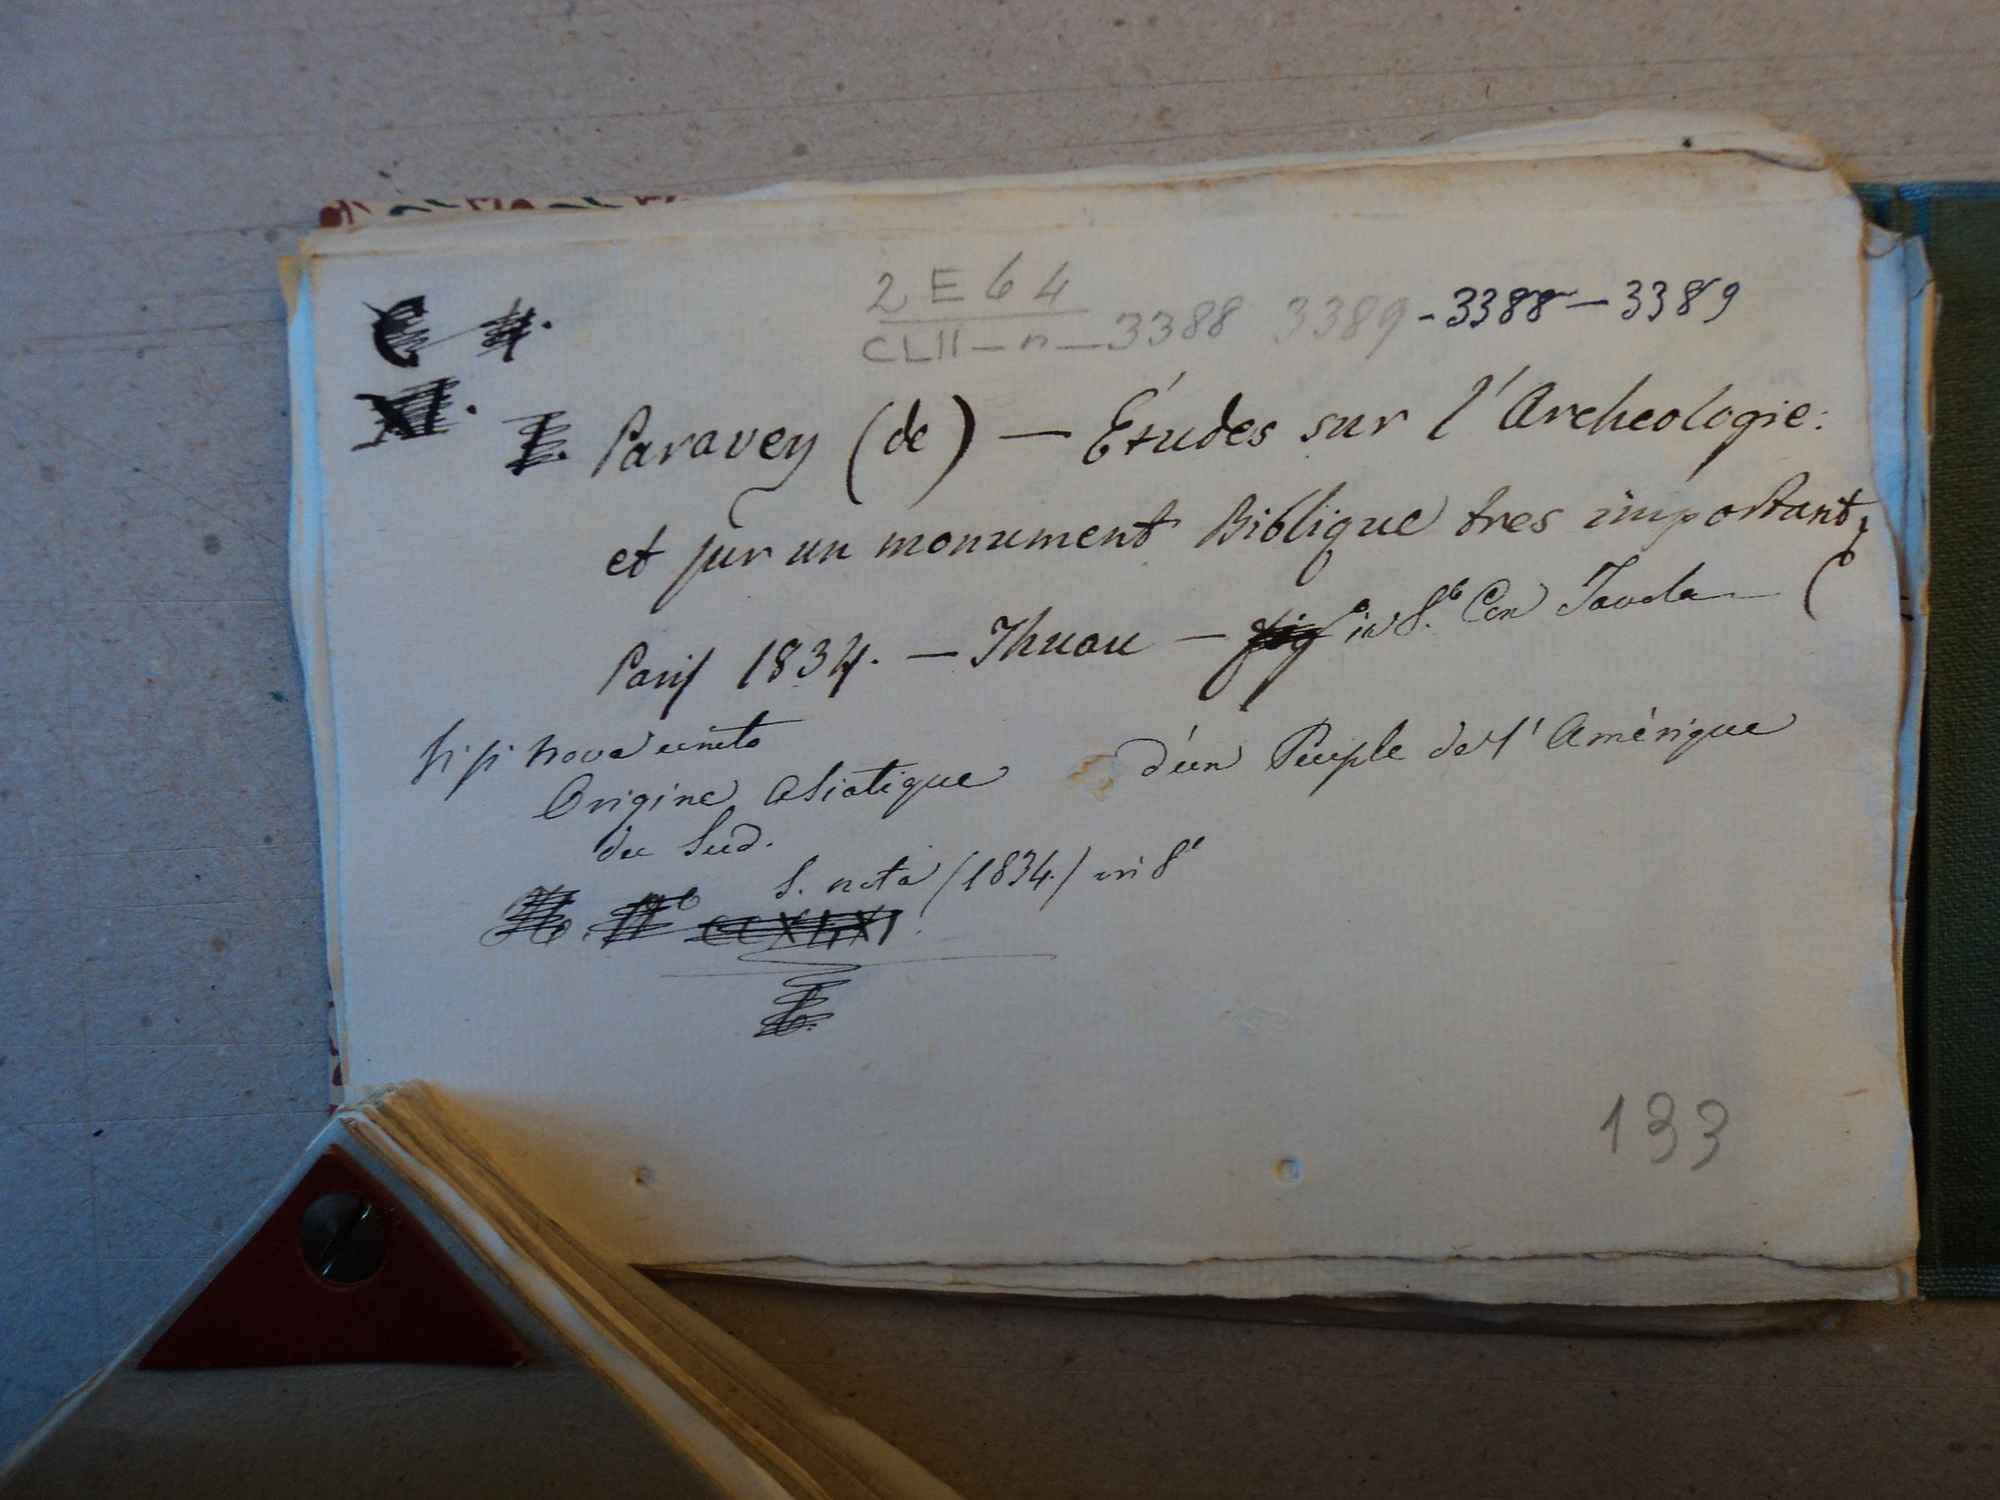 2 E 64
CLII - n - 3388 3389 - 3388 - 3389
Paravey (de) — Études sur l'Archeologie:
et sur un monument Biblique tres important,
Paris 1834. — Thuau — in 8.º Con Tavola (
vi si trova unito
Origine asiatique d'un Peuple de l'Amérique
du Sud.
S. nota (1834.) in 8º
133